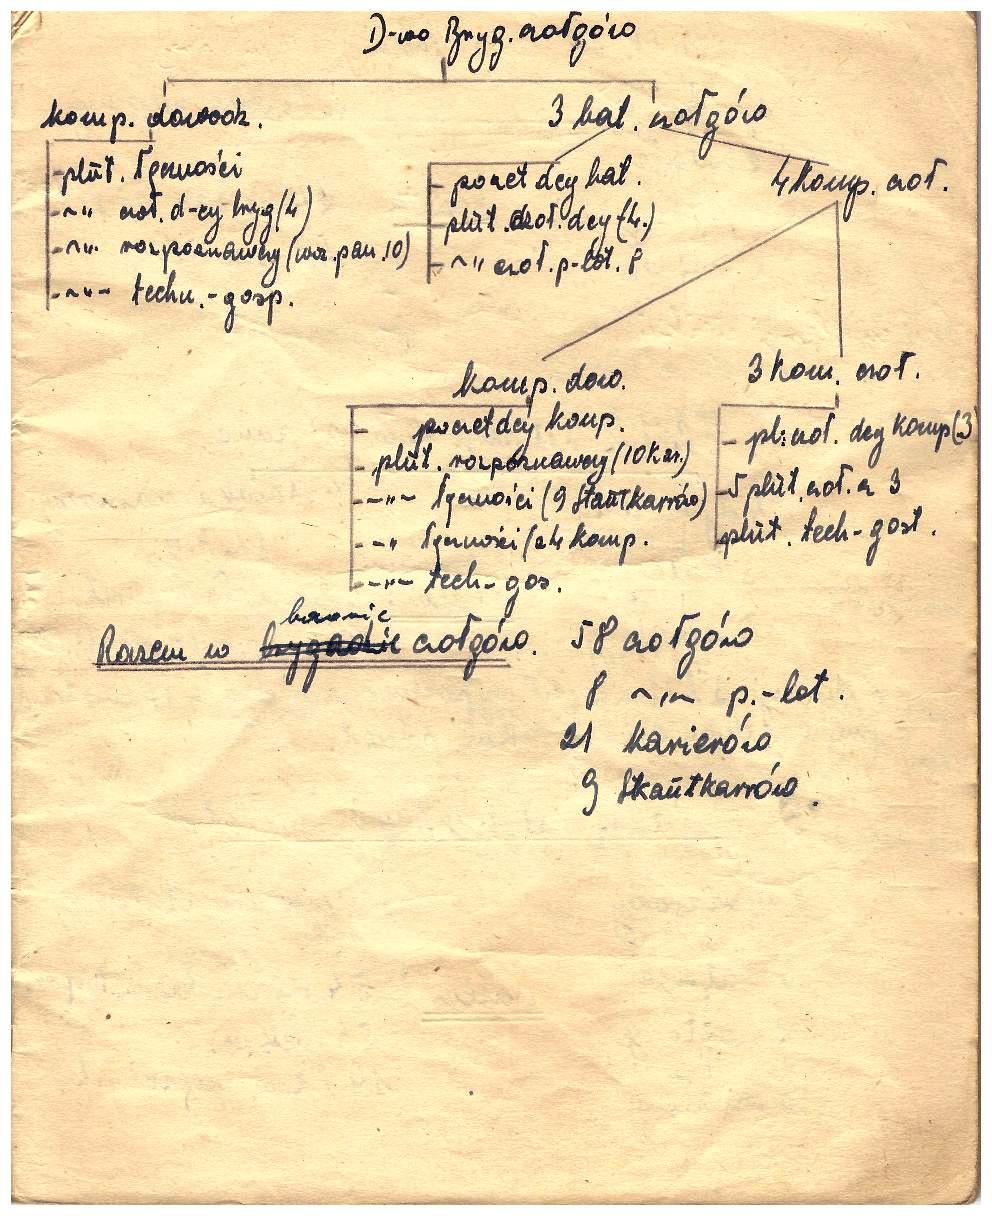 D-wo Bryg. czołgów
komp. dowodz.
- plut. łączności
- ~" czoł. d-cy bryg (4)
- ~"- rozpoznawczy (woz. pan. 10)
- ~"~ techn.-gosp.
3 bat. czołgów
- poczet dcy bat.
- plut. czoł. dcy (4.)
- ~" czoł. p-lot. 8
4 komp. czoł.
komp. dow.
- poczet dcy komp.
- plut. rozpoznawczy (10 k.)
- ~"~ łączności (9 skautkarrów)
- ~" łączności (z 4 komp.
- ~"~ tech-gos.
3 kom. czoł.
- pl. czoł. dcy komp (3)
- 5 plut. czoł. a 3
- plut. tech-gost.
Razem w brygadzie baonie czołgów. 58 czołgów
8 ~"~ p.-lot.
21 karierów
9 skautkarrów.